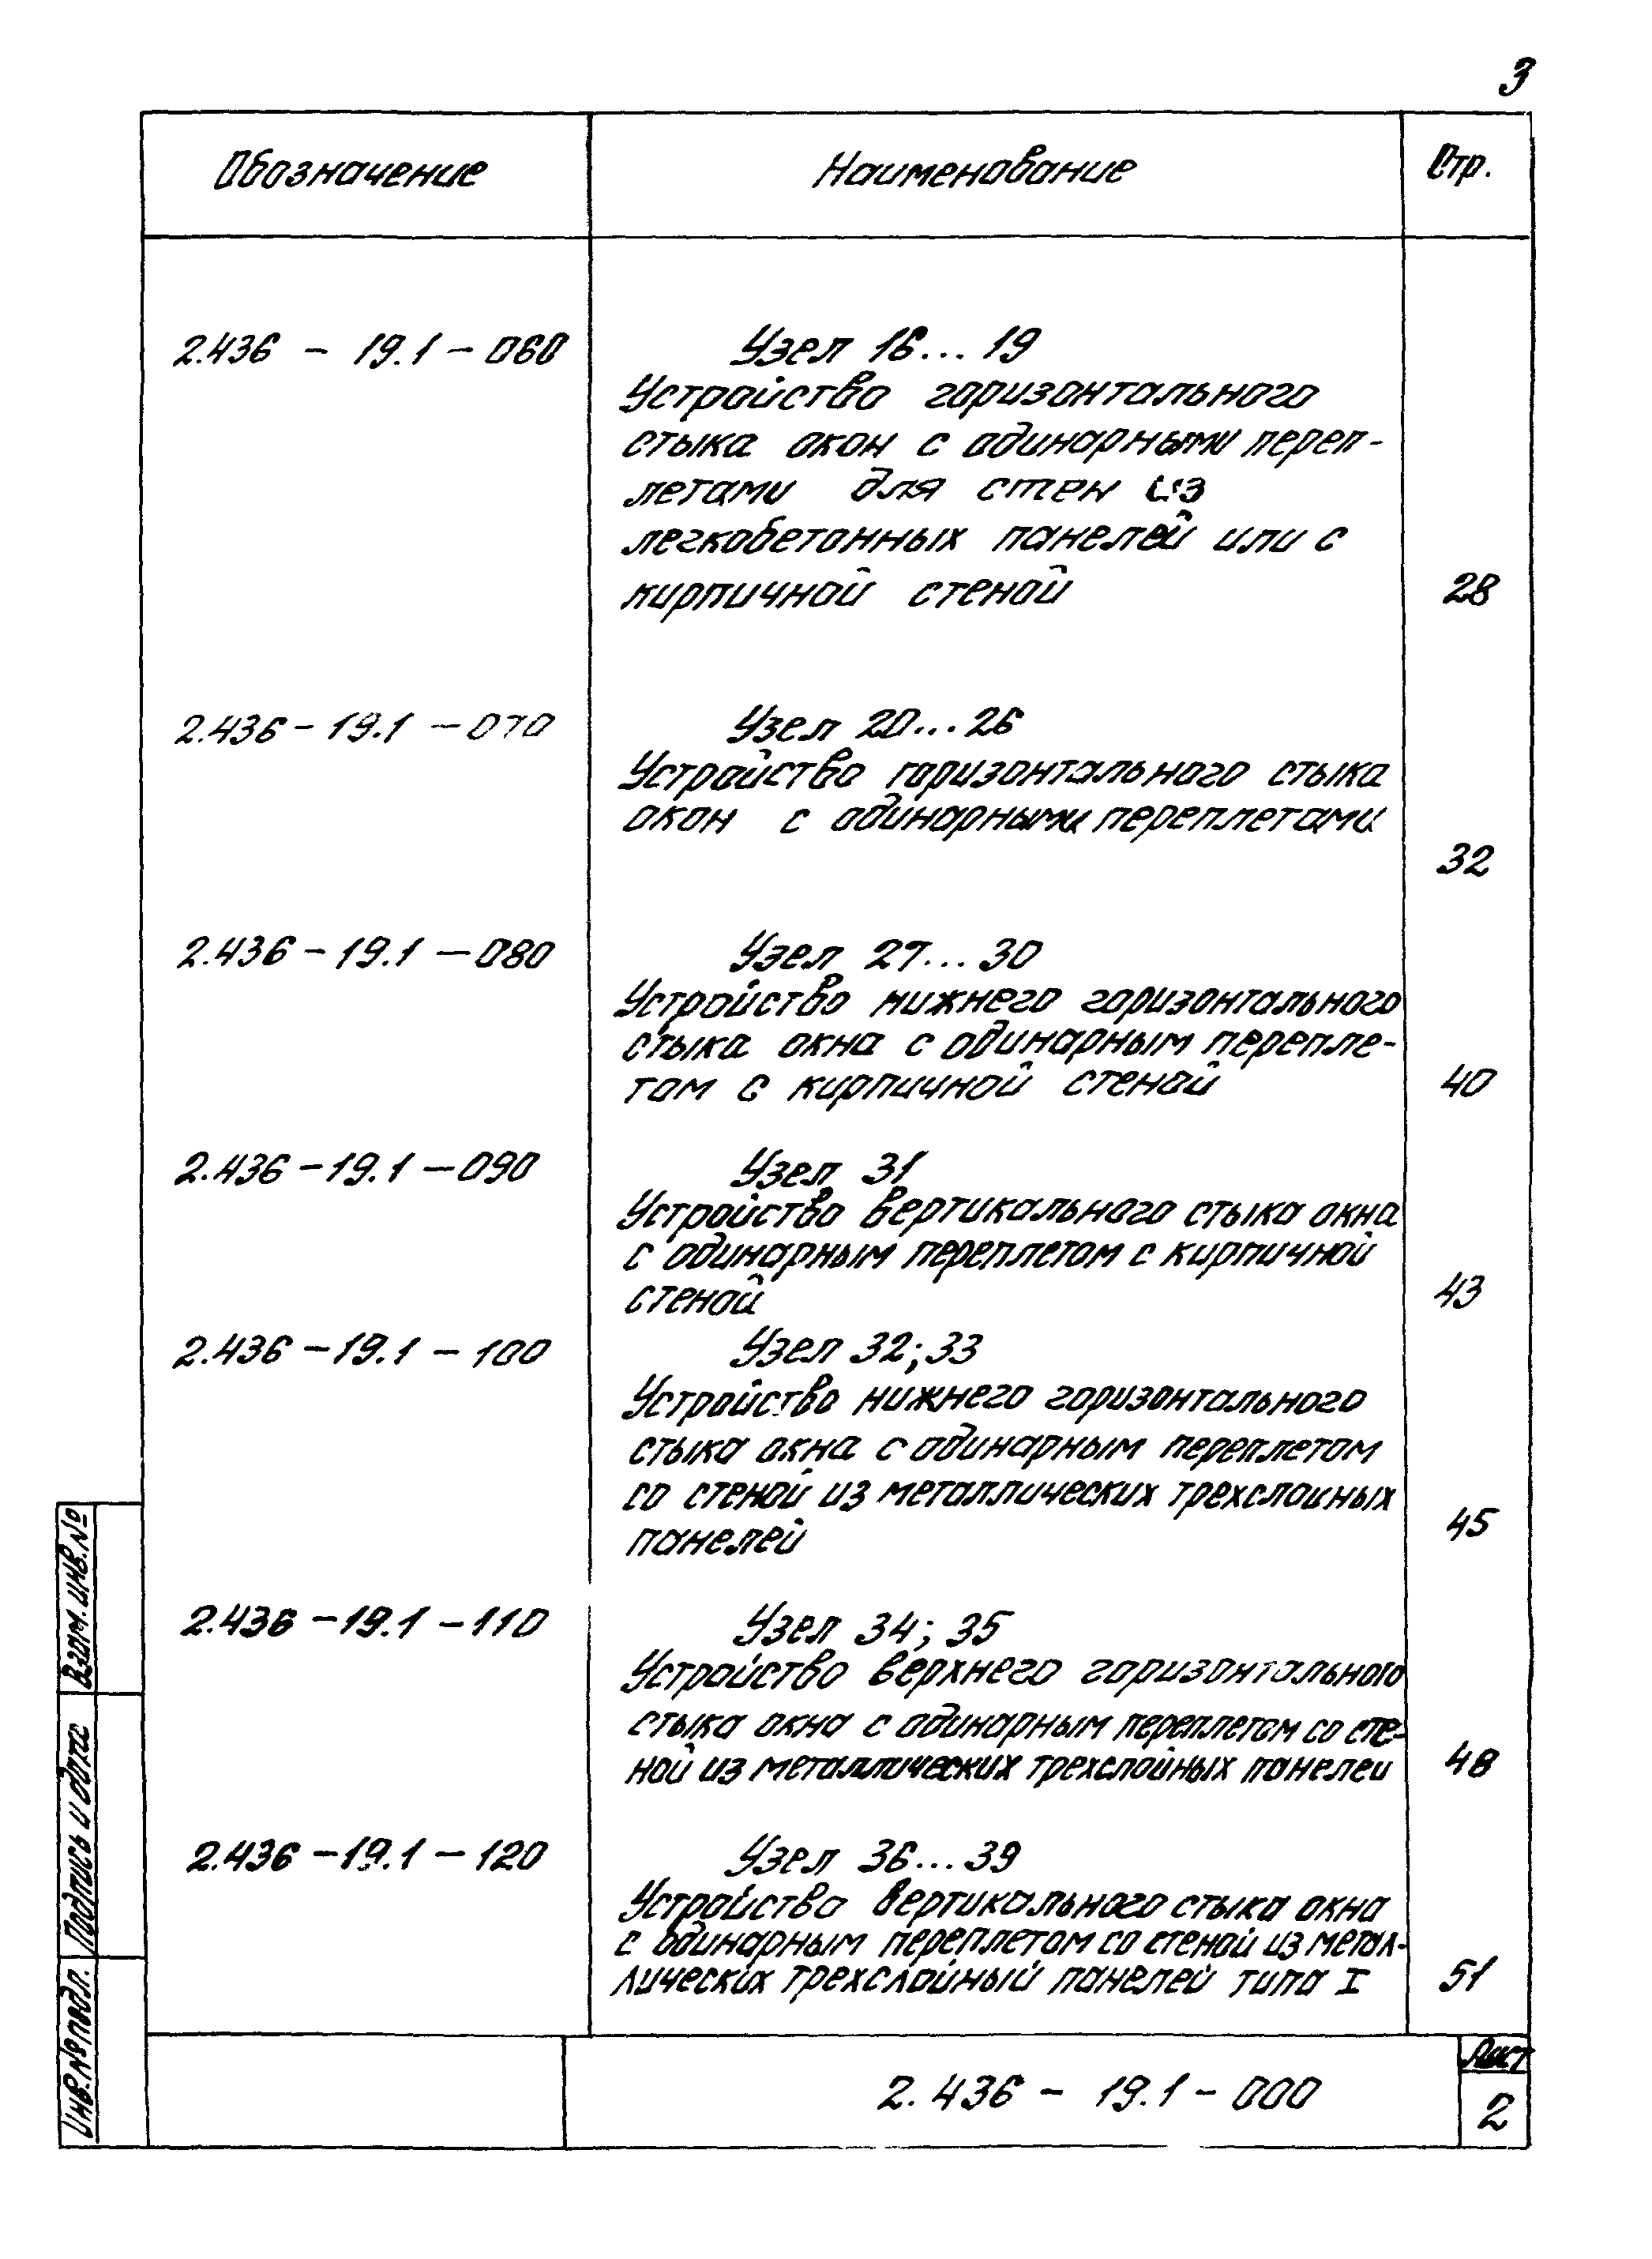 3
Обозначение Наименование Стр.
2.436 - 19.1 - 060 Узел 16...19
Устройство горизонтального
стыка окон с одинарными переп-
летами для стен из
легкобетонных панелей или с
кирпичной стеной 28
2.436 - 19.1 - 070 Узел 20...26
Устройство горизонтального стыка
окон с одинарными переплетами
32
2.436 - 19.1 - 080 Узел 27...30
Устройство нижнего горизонтального
стыка окна с одинарным перепле-
том с кирпичной стеной 40
2.436 - 19.1 - 090 Узел 31
Устройство вертикального стыка окна
с одинарным переплетом с кирпичной
стеной 43
2.436 - 19.1 - 100 Узел 32; 33
Устройство нижнего горизонтального
стыка окна с одинарным переплетом
со стеной из металлических трехслойных
панелей 45
2.436 - 19.1 - 110 Узел 34; 35
Устройство верхнего горизонтального
стыка окна с одинарным переплетом со сте-
ной из металлических трехслойных панелей 48
2.436 - 19.1 - 120 Узел 36...39
Устройство вертикального стыка окна
с одинарным переплетом со стеной из метал-
лических трехслойный панелей типа I 51
Взам. инв. №
Подпись и дата
Инв. № подл.
2.436 - 19.1 - 000
Лист
2